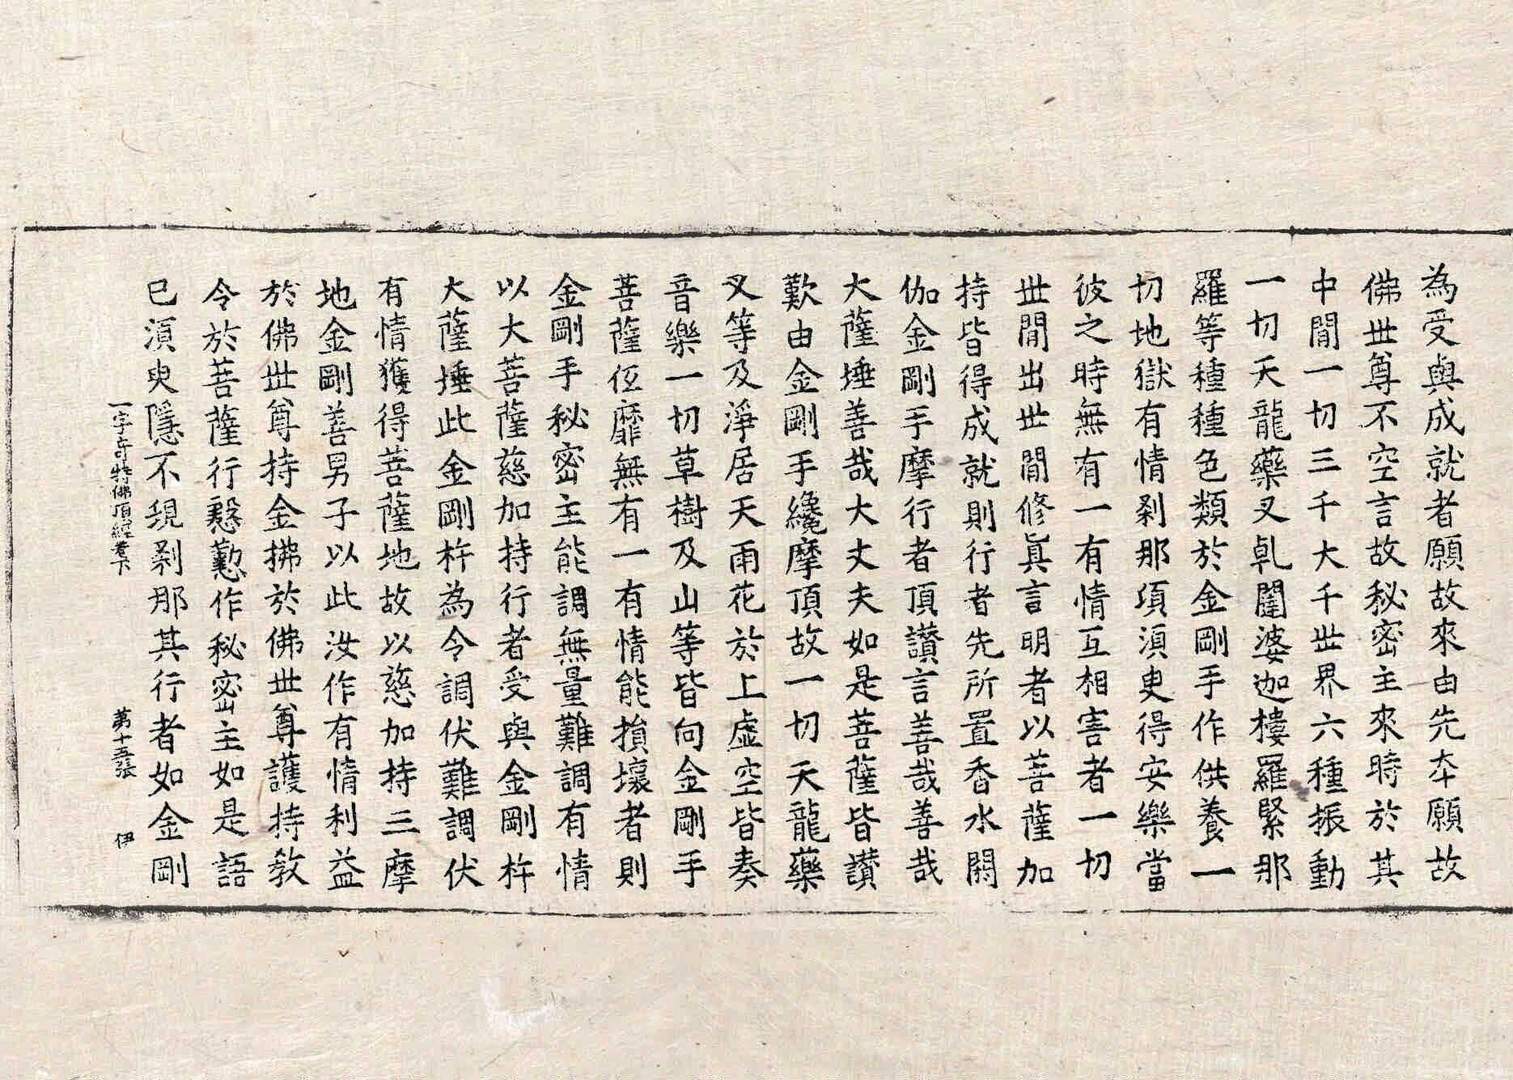 為受與成就者願故來由先夲願故
佛世尊不空言故秘密主來時於其
中閒一切三千大千世界六種振動
一切天龍藥叉乹闥婆迦樓羅緊那
羅等種種色類於金剛手作供養一
切地獄有情剎那項湏臾得安樂當
彼之時無有一有情互相害者一切
世閒出世閒修眞言明者以菩薩加
持皆得成就則行者先所置香水閼
伽金剛手摩行者頂讚言善哉善哉
大薩埵善哉大丈夫如是菩薩皆讚
歎由金剛手纔摩頂故一切天龍藥
叉等及淨居天雨花於上虛空皆奏
音樂一切草樹及山等皆向金剛手
菩薩伍靡無有一有情能損壞者則
金剛手秘密主能調無量難調有情
以大菩薩慈加持行者受與金剛杵
大薩埵此金剛杵為令調伏難調伏
有情獲得菩薩地故以慈加持三摩
地金剛善男子以此汝作有情利益
於佛世尊持金拂於佛世尊護持敎
令於菩薩行慇懃作秘密主如是語
已湏臾隱不現剎那其行者如金剛
一字奇特佛頂經卷下 第十五張 伊